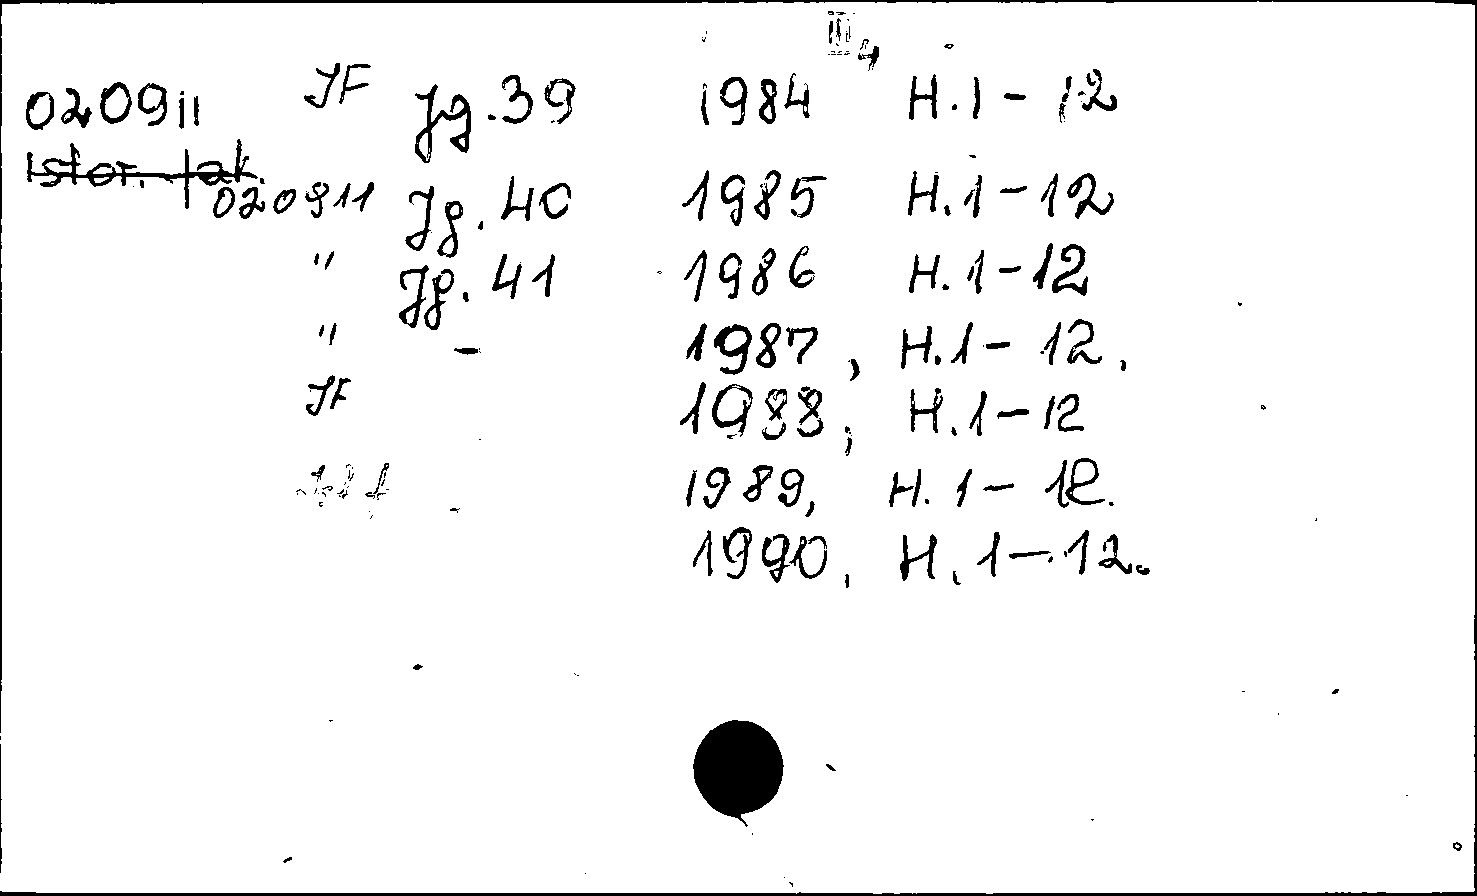 III 4
020911 JF Jg. 39 1984 H. 1 - 12
Istor. fak.
020911 Jg. 40 1985 H. 1 - 12
" Jg. 41 1986 H. 1 - 12
" - 1987, H. 1 - 12.
JF 1988, H. 1 - 12
1989, H. 1 - 12.
1990, H. 1 - 12.